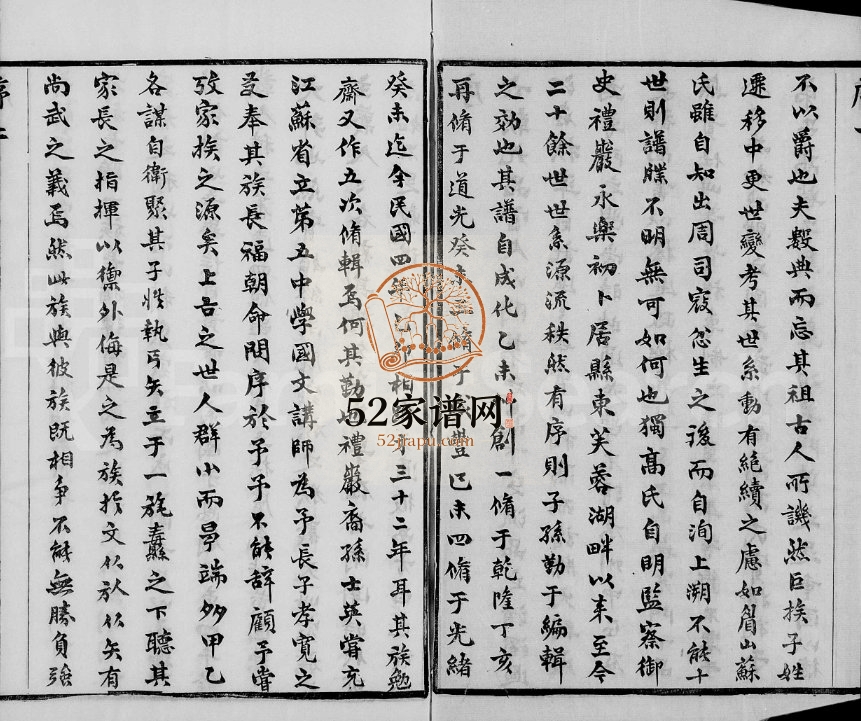 序一
不以爵也夫數典而忘其祖古人所譏然巨族子姓
遷移中更世變考其世系動有絶續之慮如眉山蘇
氏雖自知出周司寇忿生之後而自洵上溯不能十
世則譜牒不明無可如何也獨髙氏自明監察御
史禮巖永樂初卜居縣東芙蓉湖畔以来至今
二十餘世世系源流秩然有序則子孫勤于編輯
之効也其譜自成化乙未創一脩于乾隆丁亥
再脩于道光癸未三脩于咸豐己未四脩于光緒
癸未迄今民國四年乙卯相距才三十二年耳其族勉
齋又作五次脩輯焉何其勤也禮巖裔孫士英嘗充
江蘇省立第五中學國文講師為予長子孝寬之
師奉其族長福朝命問序於予予不能辭顧予嘗
攷家族之源矣上古之世人群小而爭端多甲乙
各謀自衛聚其子姓執弓矢立于一旄纛之下聽其
家長之指揮以禦外侮是之為族族文从㫃从矢有
尚武之義焉然此族與彼族既相爭不能無勝負強
序二
52家谱网
52jiapu.com